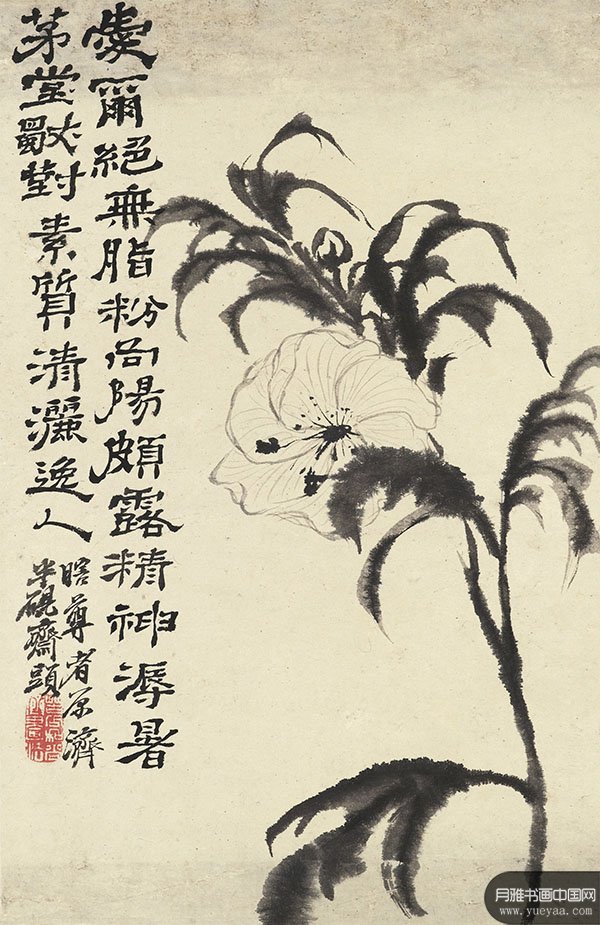 愛爾絕無脂粉向陽頗露精神溽暑
茅堂戲對素質清灑逸人
瞎尊者原濟
半硯齋頭
月雅书画中国网
www.yueyaa.com